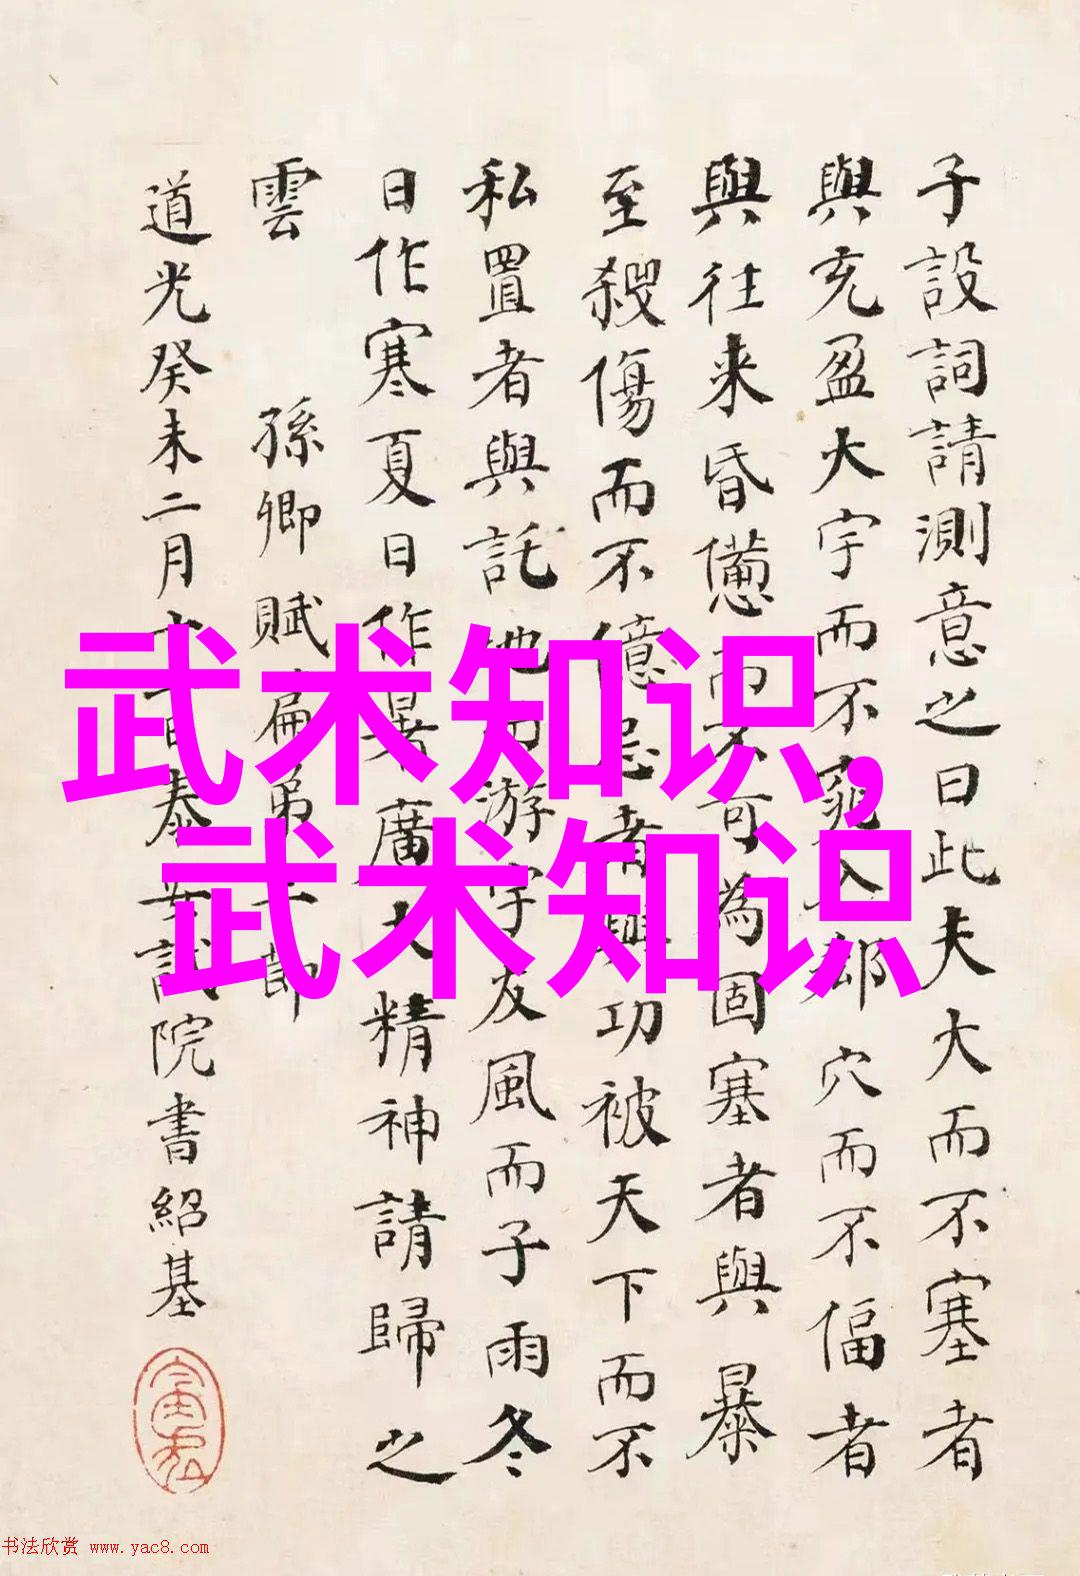 子設詞請測意之曰此夫大而不塞者
與充盈大宇而不窕入郄穴而不偪者
與往来昏憊而不可為固塞者與暴
至殺傷而不億忌者與功被天下而不
私置者與託地而游宇友風而子雨冬
日作寒夏日作暑廣大精神請歸之
雲 孫卿賦扁弟節
道光癸未二月十日泰安試院書紹基
武术知识,
武术知识
书法欣赏 www.yac8.com